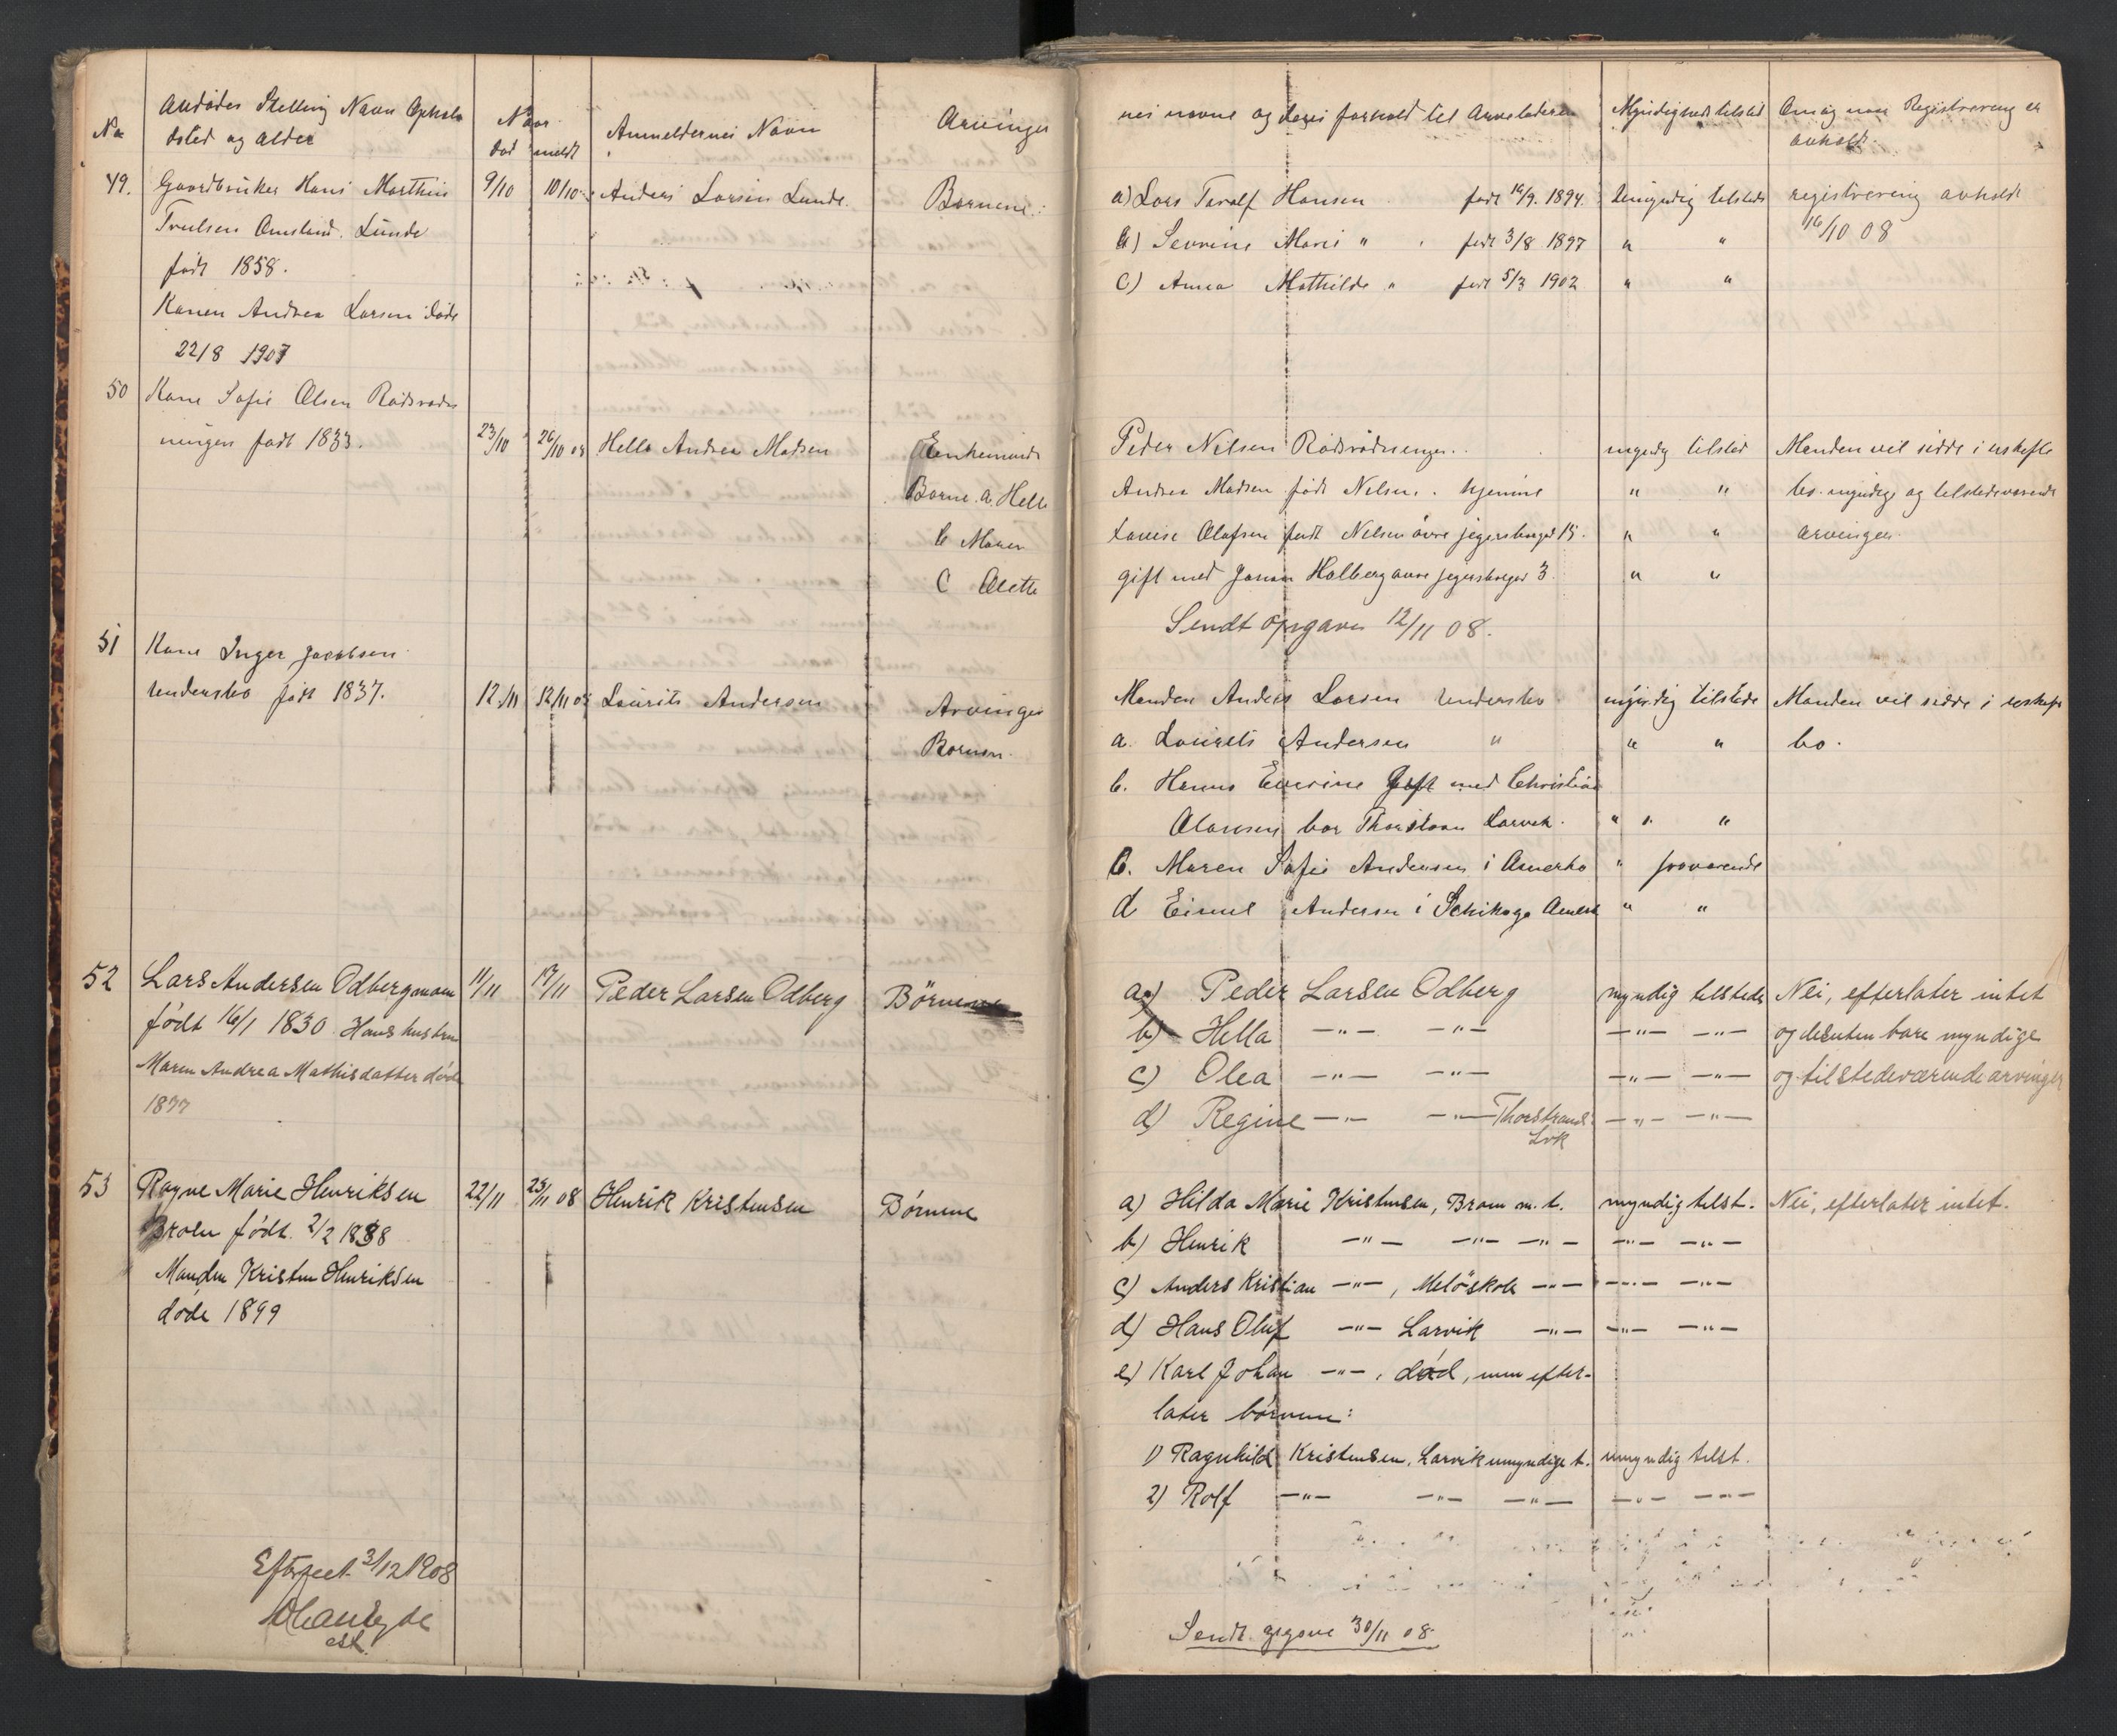 No
Avdødes Stelling Navn Ophols
dsted og alder
Naar
død meldt
Anmeldernes Navn
Arvinger
nes navne og deres forhold til Arveladeren
Myndighed tilsted
Om og naar Registrering er
avholdt.
49. Gaardbruker Hans Marthin 9/10 10/10 Anders Larsen Lunde. Barnene: a) Lars Torolf Hansen født 16/9 1894. Umyndig tilstede registrering avholdt
Trulsen Lunde b) Sevrine Marie " født 3/8 1897 " " 16/10 08
født 1858. C) Anna Mathilde " født 5/3 1902 " "
Konen Andrea Larsen døde
22/8 1907
50 Kone Sofie Olsen Rødsrødn
ningen født 1833. 23/10 26/10 08 Helle Andrea Madsen Enkemand Peder Nilsen Rødsrødningen. myndig tilsted Manden vil sidde i uskifte
Barne. a. Helle Andrea Madsen født Nilsen. hjemme " " bo. myndige og tilstedeværende
b Maren Lovise Olafsen født Nilsen øvre jegersborgd 15. " " arvinger.
C Alette gift med Johan Holberg øvre jegersborgd 3. " "
Sendt opgaver 12/11 08.
51 Kone Inger Jacobsen
Undersbo født 1837. 12/11 12/11 08 Laurits Andersen Arvinger Manden Anders Larsen Undersbo myndig tilstede Manden vil sidde i uskifte
Barnen. a. Laurits Andersen " " " bo.
b. Hanns Everine Gift med Christian
Olavesen bor Thorstran Larvik. " " "
C. Maren Sofie Andersen i Amerka " fraværende
d Eimel Andersen i Schikago Amerk " "
52 Lars Andersen Odbergmoen 11/11 17/11 Peder Larsen Odberg Børnene a) Peder Larsen Odberg myndig tilstede Nei, efterlater intet
født 16/1 1830 Hans hustru b) Hella —"— —"— —"— —"— og desuten bare myndige
Maren Andrea Mathisdatter døde c) Olea —"— —"— —"— —"— og tilstedeværende arvinger
1877 d) Regine —"— —"— Thorstrand —"— —"—
Lvk
53 Ragne Marie Henriksen 22/11 23/11 08 Henrik Kristensen Børnene a) Hilda Marie Kristensen, Bram m. t. myndig tilst. Nei, efterlater intet.
Brolen født 2/2 1838 b) Henrik —"— —"— —"— —"— —"—
Manden Kristen Henriksen c) Anders Kristian —"—, Meløskole —"— —"— —"—
døde 1899 d) Hans Oluf —"— Larvik —"— —"— —"—
e) Karl Johan —"—, død, men efter-
later børnene:
1) Ragnhild Kristensen, Larvik umyndige t. umyndig tilst.
2) Rolf —"— —"— —"— —"— —"—
Efterseet 3/12 1908
Sendt opgave 30/11 08.